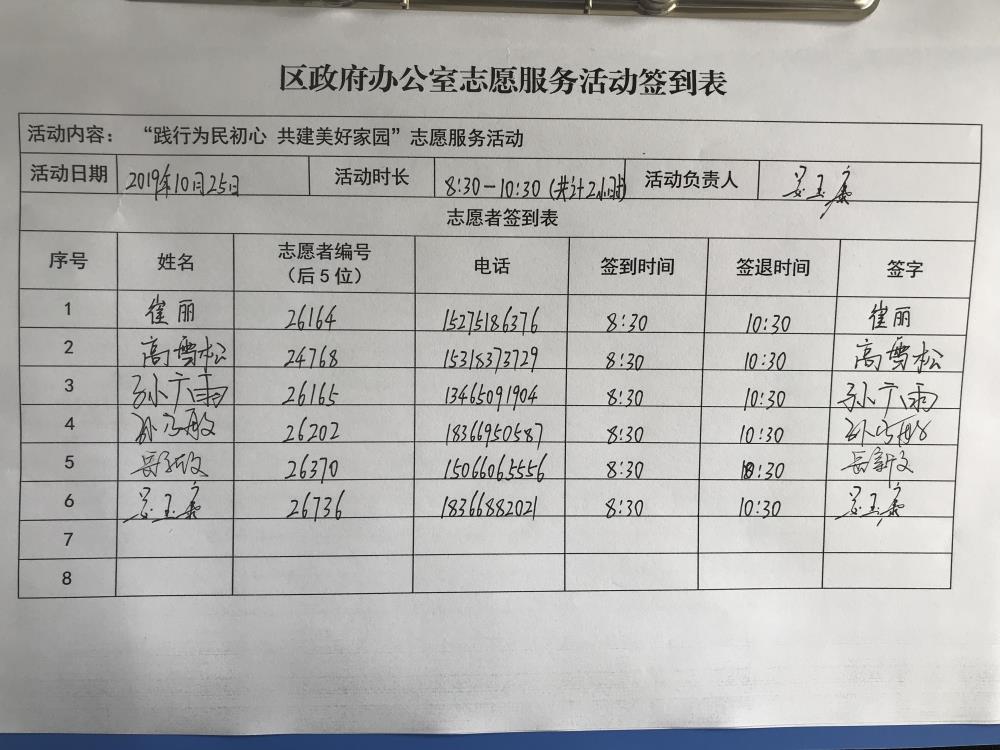 区政府办公室志愿服务活动签到表
活动内容： “践行为民初心 共建美好家园”志愿服务活动
活动日期 2019年10月25日 活动时长 8:30-10:30(共计2小时) 活动负责人 吴玉康
志愿者签到表
序号 姓名 志愿者编号（后5位） 电话 签到时间 签退时间 签字
1 崔丽 26164 15275186376 8:30 10:30 崔丽
2 高雪松 24768 15318373729 8:30 10:30 高雪松
3 孙广雨 26165 13465091904 8:30 10:30 孙广雨
4 26202 18366950587 8:30 10:30
5 26370 15066065556 8:30 10:30
6 吴玉康 26736 18366882021 8:30 10:30 吴玉康
7
8